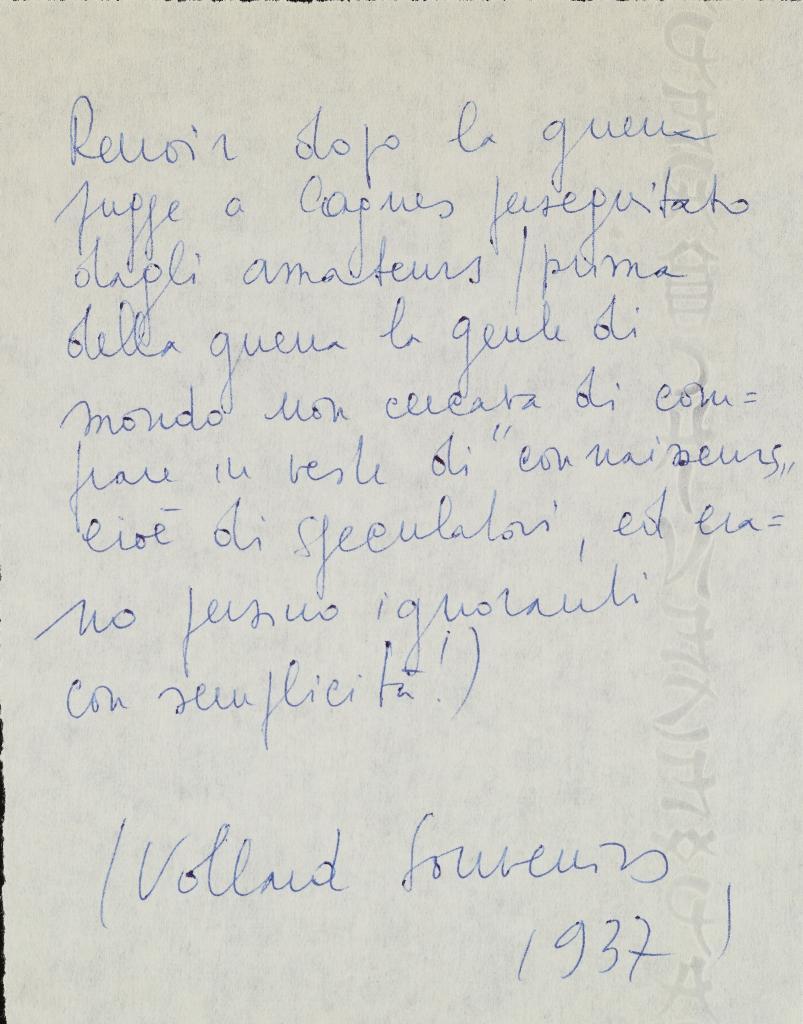 Renoir dopo la guerra
fugge a Cagnes perseguitato
dagli amateurs (prima
della guerra la gente di
mondo non cercava di com=
prare in veste di "connaisseurs„
cioè di speculatori, ed era=
no persino ignoranti
con semplicità!)
(Vollard Souvenirs
1937)